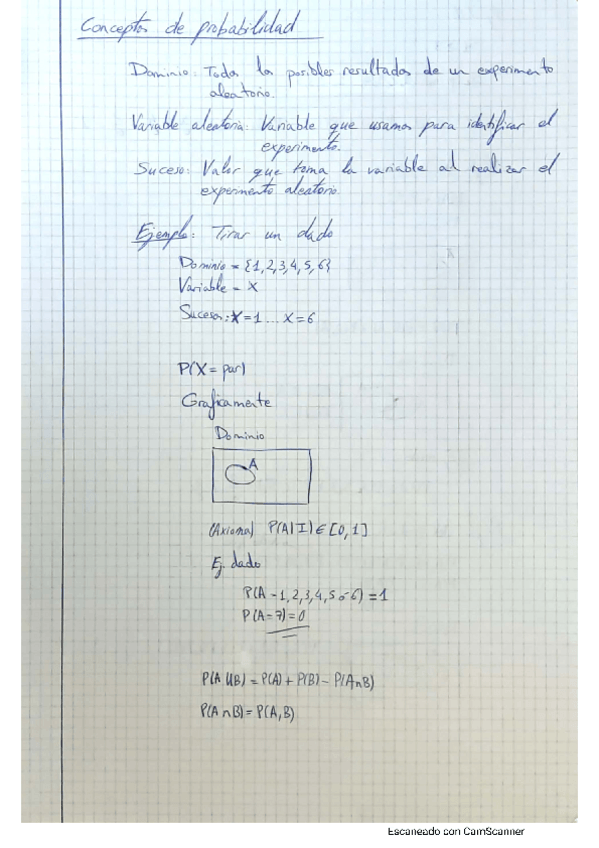 Conceptos de probabilidad
Dominio: Todos los posibles resultados de un experimento
aleatorio.
Variable aleatoria: Variable que usamos para identificar el
experimento.
Suceso: Valor que toma la variable al realizar el
experimento aleatorio.
Ejemplo: Tirar un dado
Dominio = {1,2,3,4,5,6}
Variable = X
Sucesos: X=1 ... X=6
P(X = par)
Graficamente
Dominio
A
(Axioma) P(A|I) ∈ [0,1]
Ej. dado
P(A = 1,2,3,4,5 ó 6) = 1
P(A = 7) = 0
P(A ∪ B) = P(A) + P(B) - P(A∩B)
P(A ∩ B) = P(A,B)
Escaneado con CamScanner